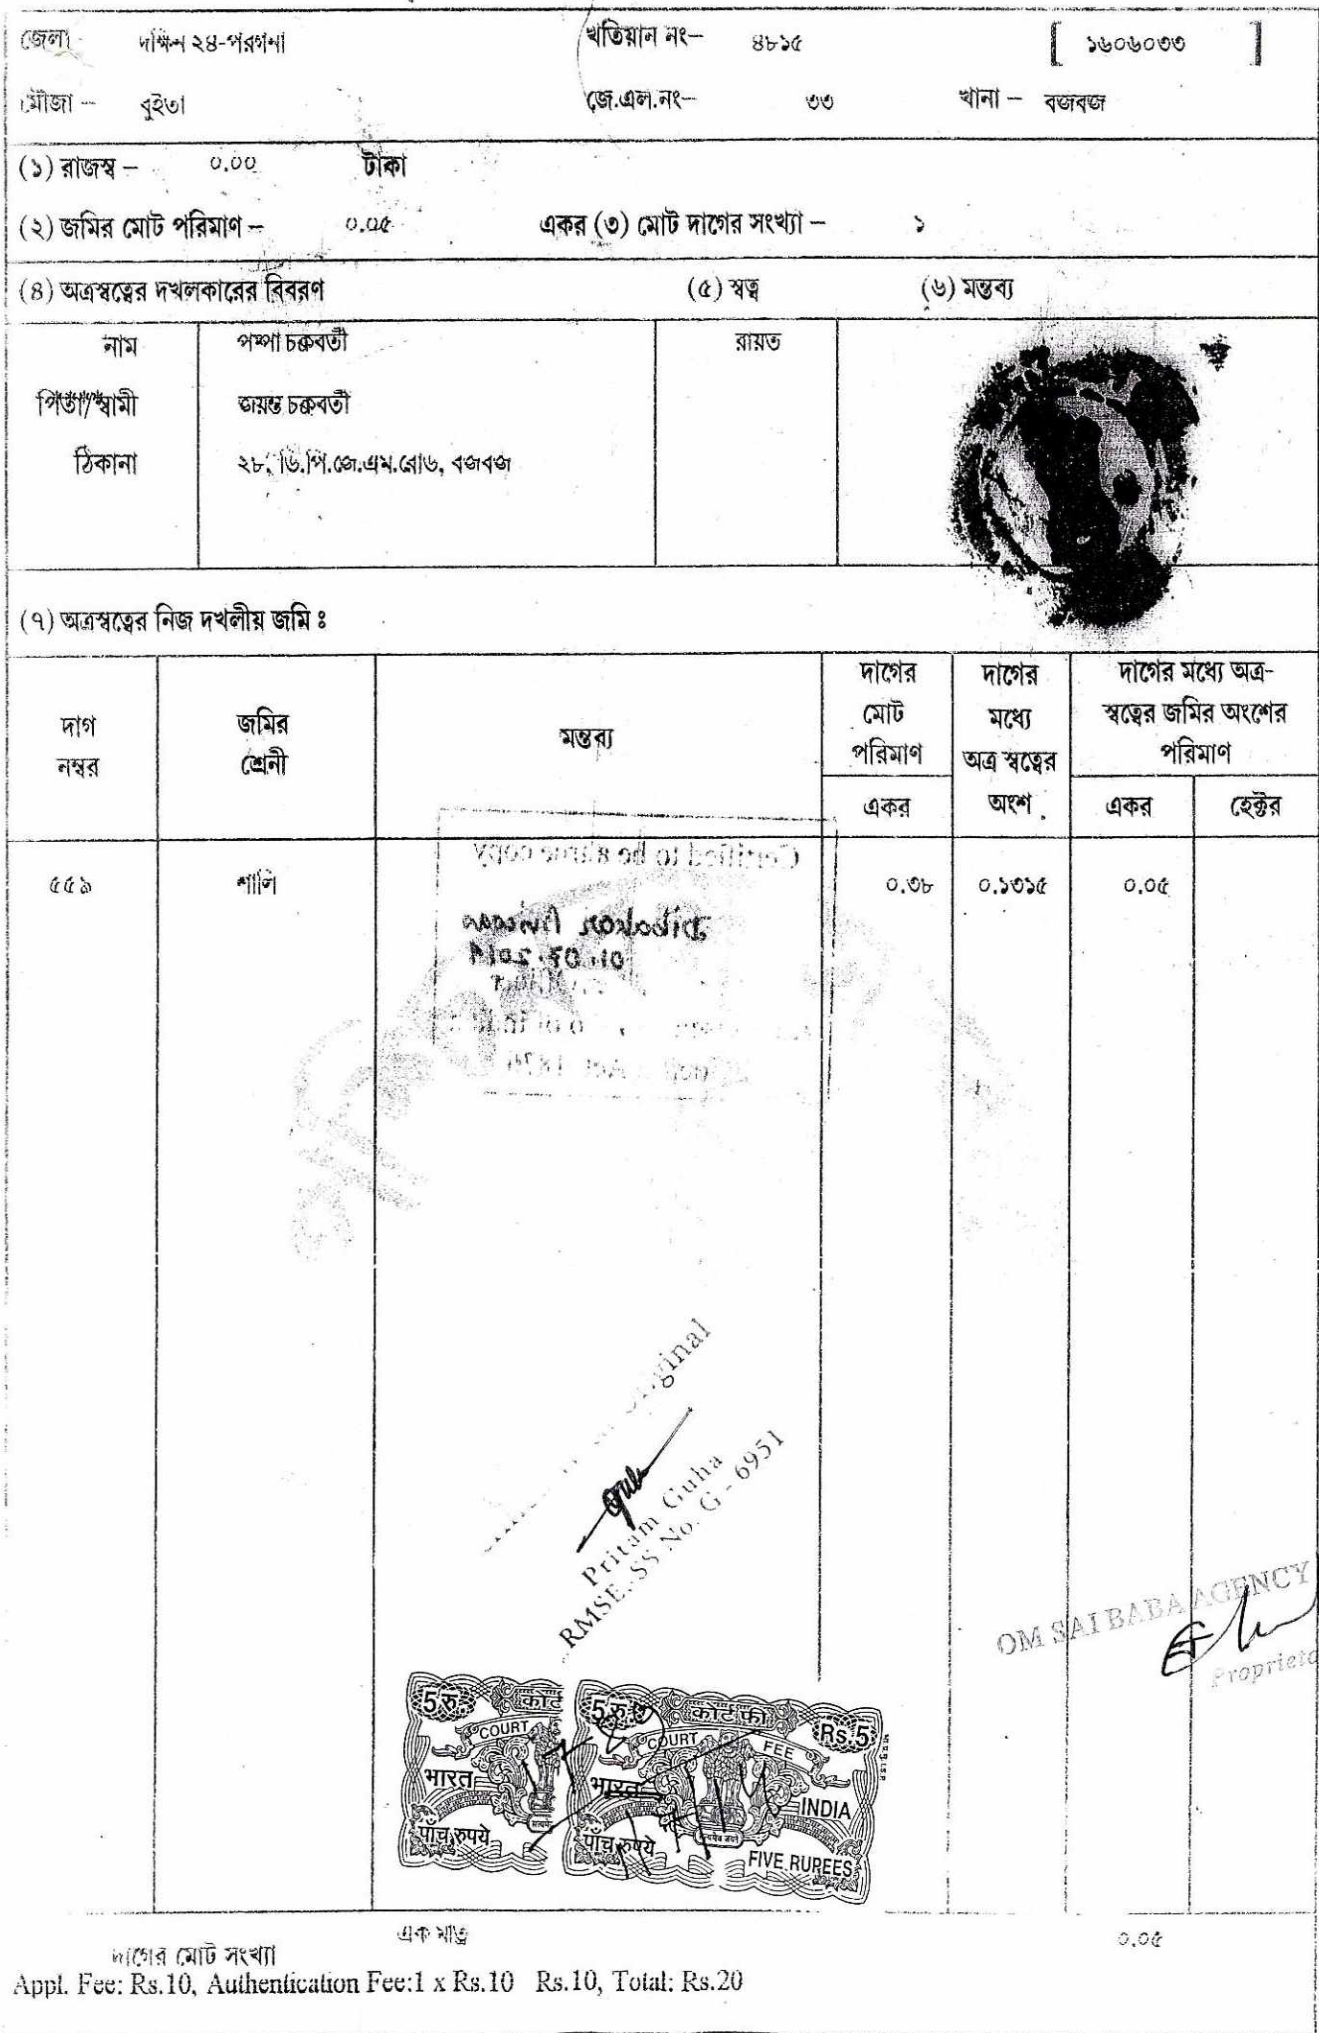 জেলা দক্ষিন ২৪-পরগনা খতিয়ান নং– ৪৮১৫ [ ১৬০৬০৩৩ ]
মৌজা – বুইতা জে.এল.নং– ৩৩ থানা – বজবজ
(১) রাজস্ব – ০.০০ টাকা
(২) জমির মোট পরিমাণ – ০.০৫ একর (৩) মোট দাগের সংখ্যা – ১
(৪) অত্রস্বত্বের দখলকারের বিবরণ (৫) স্বত্ব (৬) মন্তব্য
নাম পম্পা চক্রবর্তী রায়ত
পিতা/স্বামী জয়ন্ত চক্রবর্তী
ঠিকানা ২৮, ডি.পি.জে.এম.রোড, বজবজ
(৭) অত্রস্বত্বের নিজ দখলীয় জমি ঃ
দাগ নম্বর
জমির শ্রেনী
মন্তব্য
দাগের মোট পরিমাণ
একর
দাগের মধ্যে অত্র স্বত্বের অংশ
দাগের মধ্যে অত্র-
স্বত্বের জমির অংশের
পরিমাণ
একর হেক্টর
৫৫৯ শালি ০.৩৮ ০.১৩১৫ ০.০৫
Certified to be a true copy
Pritam Guha
RMSE, SS No. G - 6951
OM SAI BABA AGENCY
5 रु कोर्ट
COURT
भारत
पाँच रुपये
5 रु कोर्ट फी Rs.5
COURT FEE
भारत INDIA
पाँच रुपये FIVE RUPEES
এক মাত্র ০.০৫
দাগের মোট সংখ্যা
Appl. Fee: Rs.10, Authentication Fee:1 x Rs.10 Rs.10, Total: Rs.20